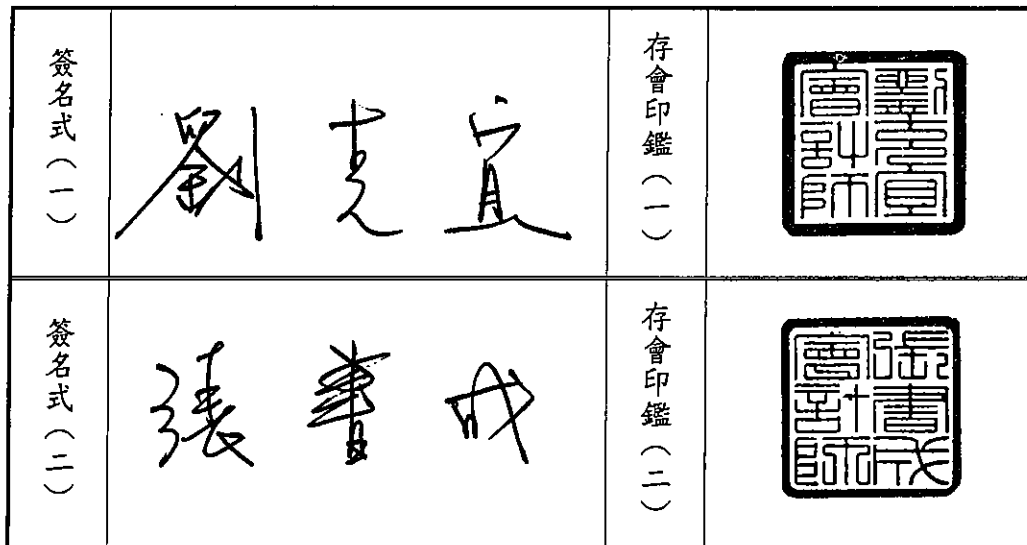 簽名式（一）
劉克宜
存會印鑑（一）
劉克宜
會計師
簽名式（二）
張書成
存會印鑑（二）
張書成
會計師